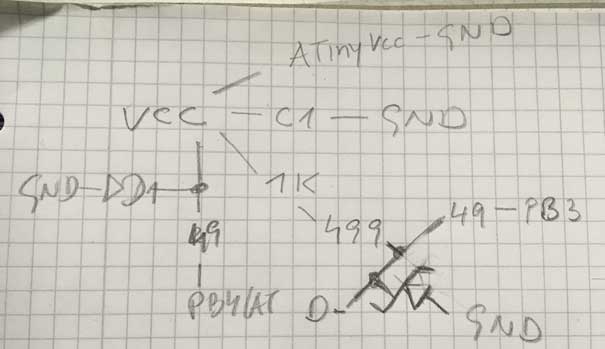 ATiny Vcc - GND
VCC - C1 - GND
GND - DD1 - 1K
499 49 - PB3
49
PB4(A D- GND